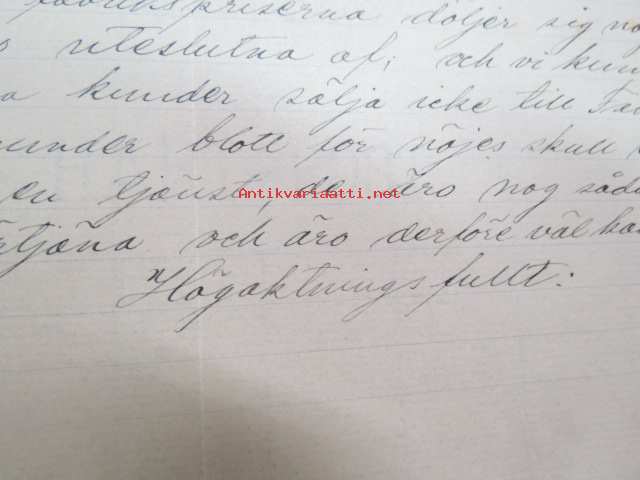 fabrikspriserna döljer sig nog
uteslutna af; och vi kun
kunder sälja icke till Fa
under blott för nöjes skull
en tjenst, de äro nog såd
rtjena och äro derföre väl ka
Högaktningsfullt:
Antikvariaatti.net